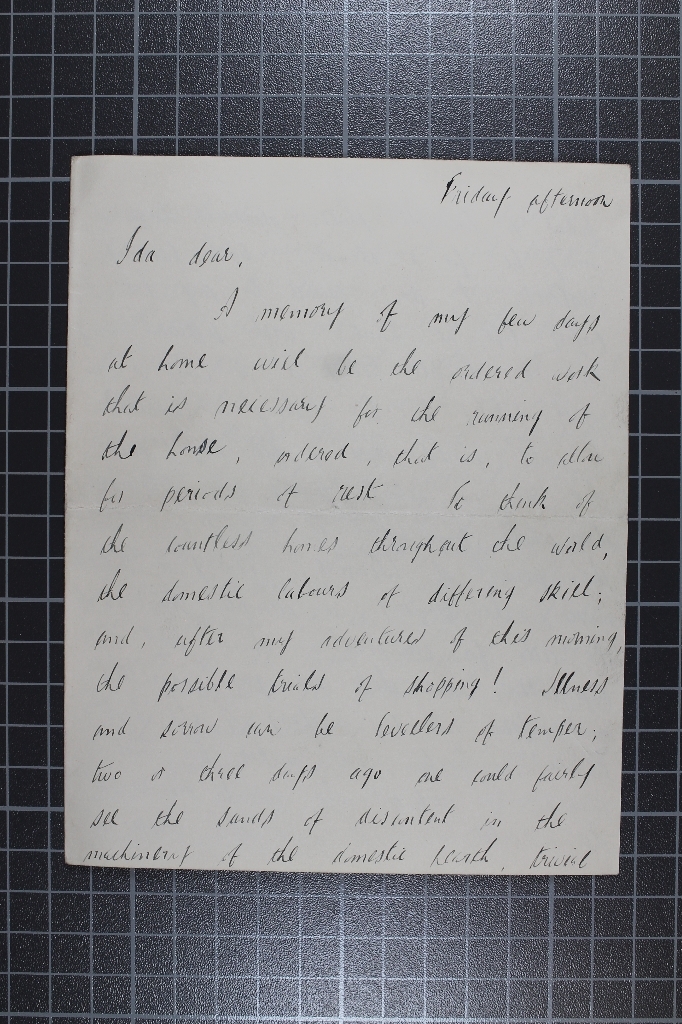 Friday afternoon
Ida dear,
A memory of my few days
at home will be the ordered work
that is necessary for the running of
the house, ordered, that is, to allow
for periods of rest To think of
the countless homes throughout the world,
the domestic labours of differing skill;
and, after my adventures of this morning,
the possible trials of shopping! Illness
and sorrow can be levellers of temper;
two or three days ago one could fairly
see the sands of discontent in the
machinery of the domestic hearth, trivial